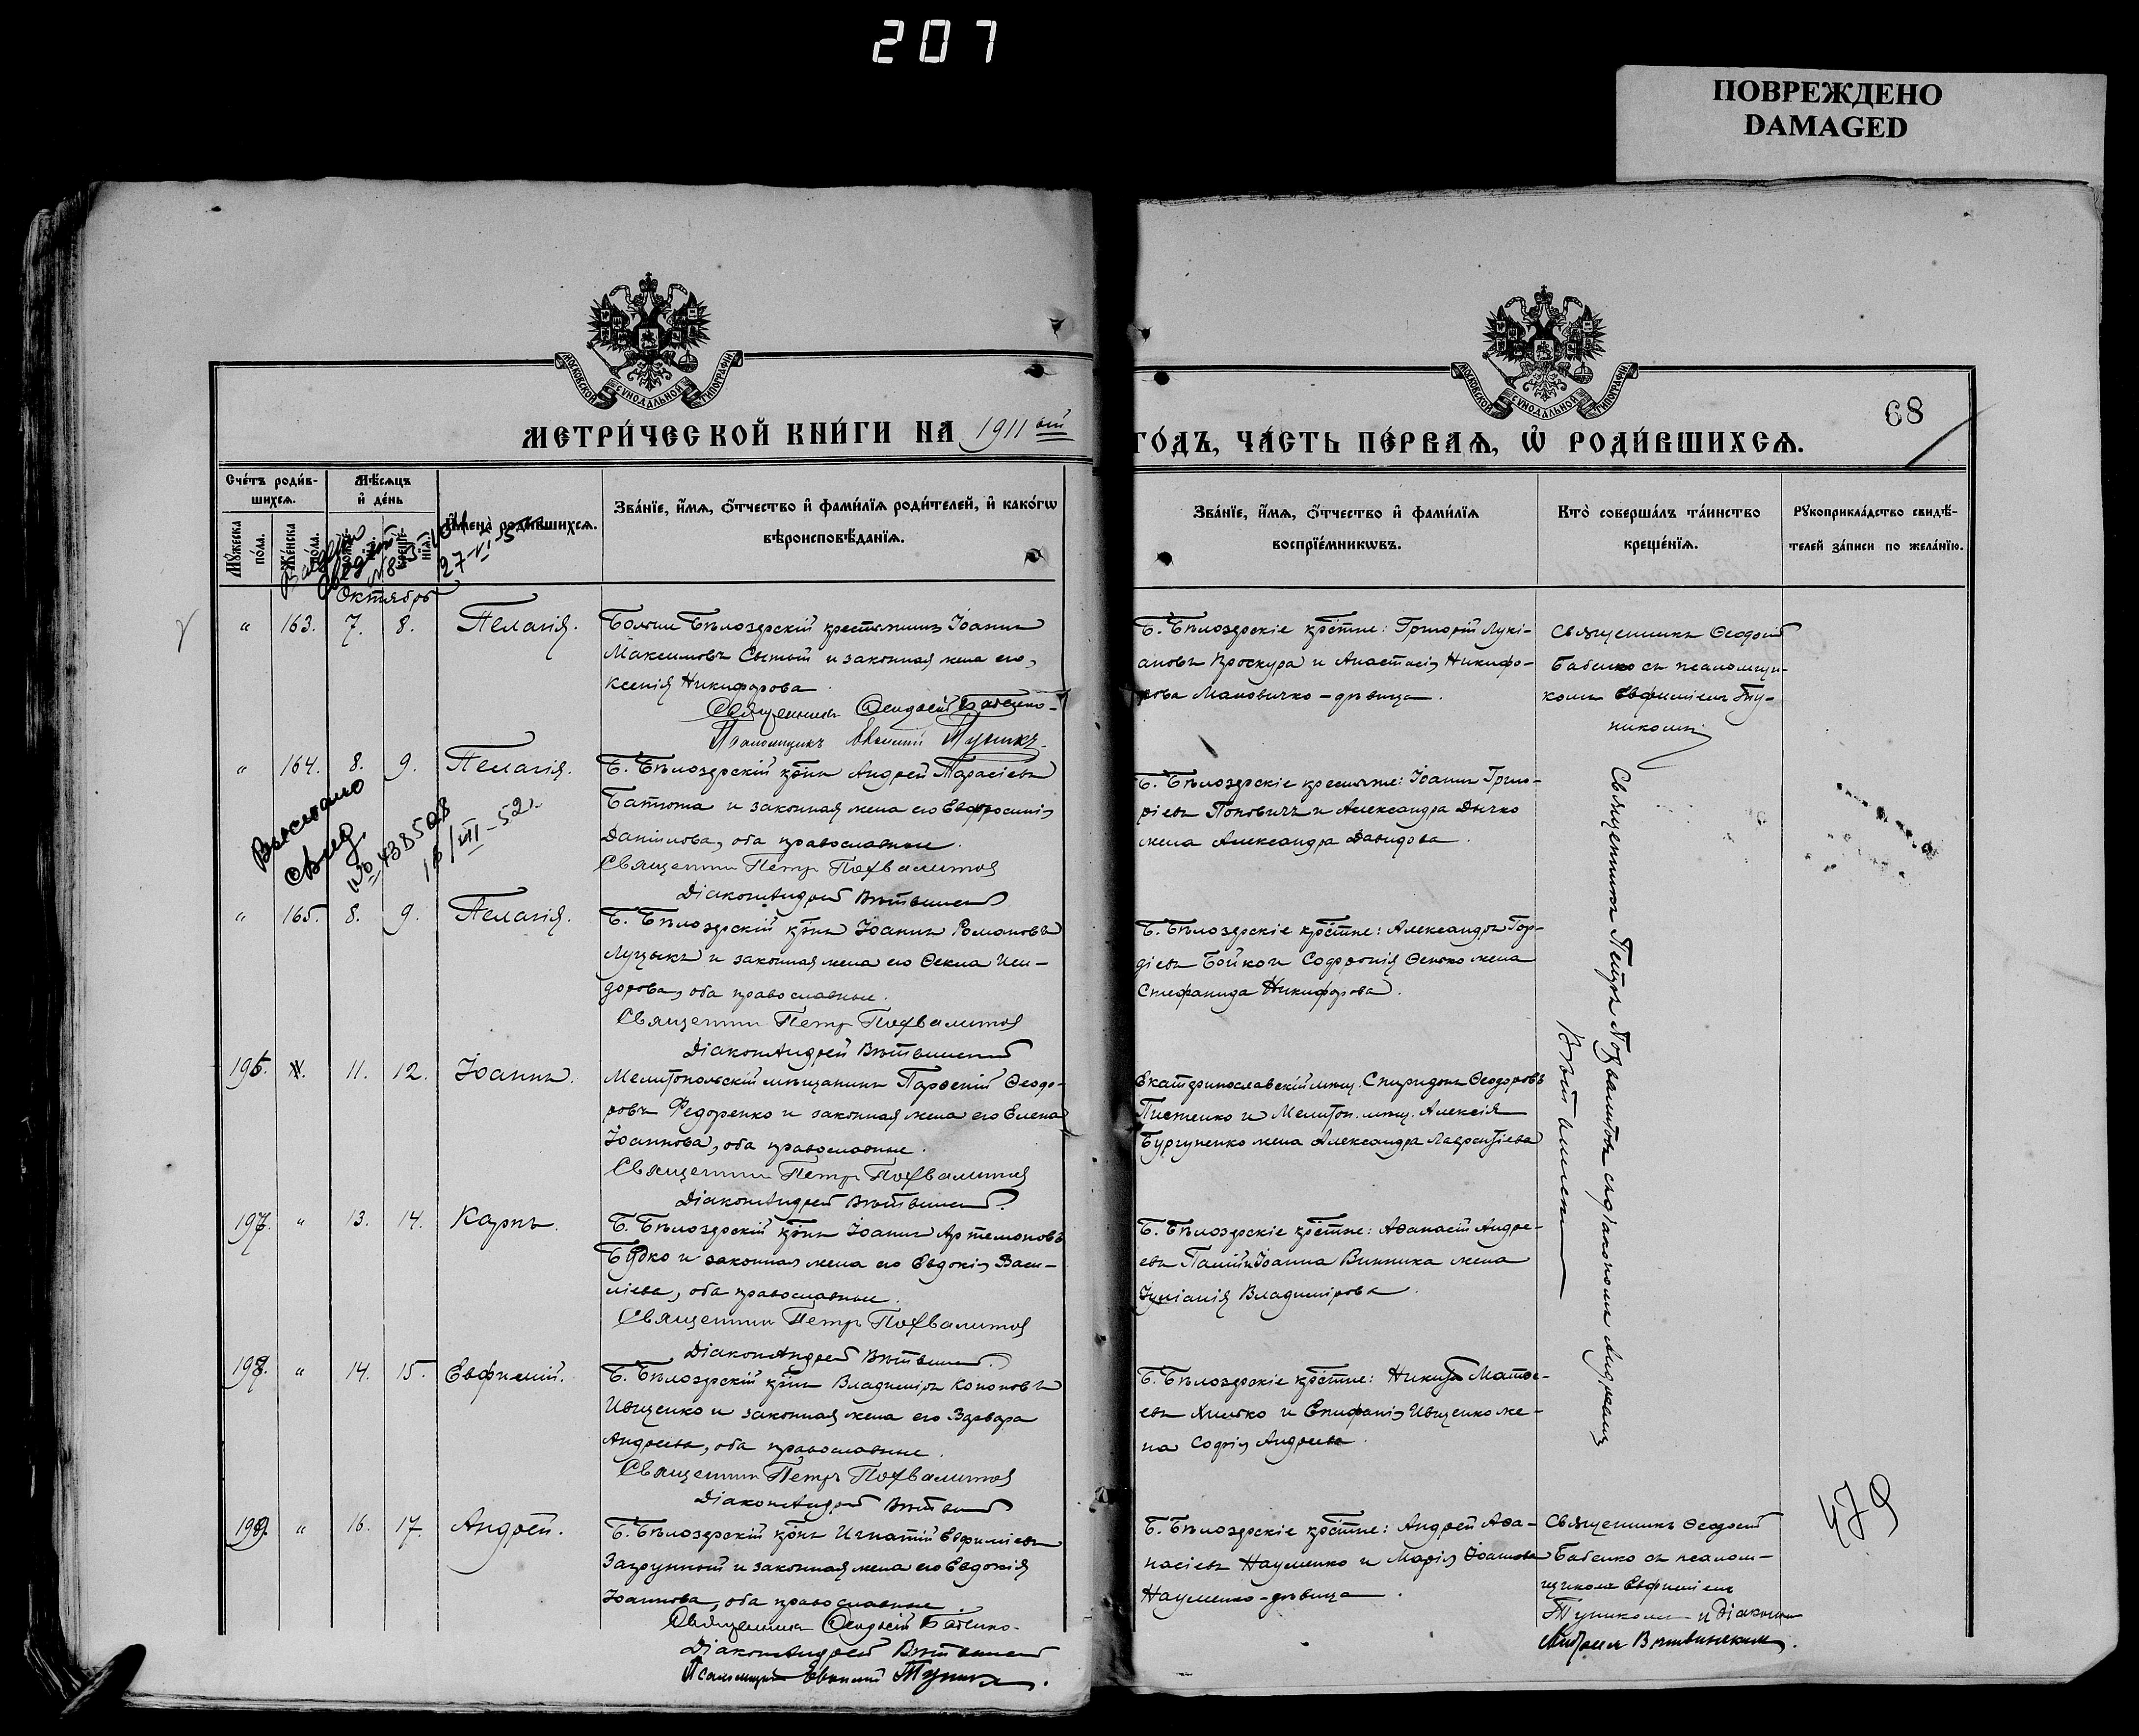 207
ПОВРЕЖДЕНО
DAMAGED
МОСКОВСКОЙ СѴНОДАЛЬНОЙ ТИПОГРАФІИ
МОСКОВСКОЙ СѴНОДАЛЬНОЙ ТИПОГРАФІИ
68
МЕТРИ́ЧЕСКОЙ КНИ́ГИ НА 1911 ый
ГО́ДЪ, ЧА́СТЬ ПЕ́РВАѦ, Ѡ҆ РОДИ́ВШИХСѦ.
Сче́тъ роди́в-
шихсѧ.
Мѣ́сѧцъ
и҆ де́нь
Мꙋ́жеска
по́ла.
Же́нска
по́ла.
И҆мена̀ роди́вшихсѧ.
Зва́нїе, и҆́мѧ, ѻ҆́тчество и҆ фами́лїѧ роди́телей, и҆ како́гѡ
вѣроисповѣ́данїѧ.
Зва́нїе, и҆́мѧ, ѻ҆́тчество и҆ фами́лїѧ
воспрїе́мникѡвъ.
Кто̀ соверша́лъ та́инство
креще́нїѧ.
Рꙋкоприкла́дство свидѣ́-
телей за́писи по жела́нїю.
27-VI-
Октябрь
" 163. 7. 8. Пелагія.
Больше Бѣлозерскій крестьянинъ Іоаннъ
Максимовъ Сытый и законная жена его,
Ксенія Никифорова
Священникъ Ѳеодосій Бабенко
Псаломщикъ Евѳимій Тупикъ
Б. Бѣлозерскіе кр̃стне: Григорій Лукі-
ановъ Проскура и Анастасія Никифо-
рова Маловичко - дѣвица.
Священникъ Ѳеодосій
Бабенко съ псаломщи-
комъ Евфиміемъ Ту-
пикомъ
" 164. 8. 9. Пелагія.
Б. Бѣлозерскій кр̃нъ Андрей Тарасіевъ
Батюта и законная жена его Евфросинія
Даніилова, оба православные.
Священникъ Петръ Похвалитов
Діаконъ Андрей Вѣтвинскій
Б. Бѣлозерскіе крестьяне: Іоаннъ Григо-
ріевъ Поповичъ и Александра Дычко
жена Александра Давидова.
Выслано
свид.
№ 438508
16/VII-52г.
" 165. 8. 9. Пелагія.
Б. Бѣлозерскій кр̃нъ Іоаннъ Романовъ
Луцыкъ и законная жена его Ѳекла Иси-
дорова, оба православные.
Священникъ Петръ Похвалитов
Діаконъ Андрей Вѣтвинскій
Б. Бѣлозерскіе кр̃стне: Александръ Гор-
діевъ Бойко и Софронія Ѳенько жена
Стефанида Никифорова.
Священникъ Петръ Похвалитовъ съ діакономъ Андреемъ
Вѣтвинскимъ
196. 11. 12. Іоаннъ.
Мелитопольскій мѣщанинъ Парѳеній Ѳеодо-
ровъ Федоренко и законная жена его Елена
Іоаннова, оба православные.
Священникъ Петръ Похвалитов
Діаконъ Андрей Вѣтвинскій
Екатеринославскій мѣщ. Спиридонъ Ѳеодоровъ
и Мелитоп. мѣщ. Алексія
Бургуненко жена Александра Лаврентіева
197. " 13. 14. Карпъ.
Б. Бѣлозерскій кр̃нъ Іоаннъ Артемоновъ
Будко и законная жена его Евдокія Васи-
ліева, оба православные.
Священникъ Петръ Похвалитов
Діаконъ Андрей Вѣтвинскій
Б. Бѣлозерскіе кр̃стне: Аѳанасій Андре-
евъ Палій и Іоанна Винника жена
Іуліанія Владимірова.
198. " 14. 15. Евфимій.
Б. Бѣлозерскій кр̃нъ Владиміръ Кононовъ
Ивженко и законная жена его Варвара
Андреева, оба православные.
Священникъ Петръ Похвалитов
Діаконъ Андрей Вѣтвинскій
Б. Бѣлозерскіе кр̃стне: Никита Матѳе-
евъ Хилько и Епифанія Ивженко же-
на Софія Андреева.
199. " 16. 17. Андрей.
Б. Бѣлозерскій кр̃нъ Игнатій Евфиміевъ
Загрунный и законная жена его Евдокія
Іоаннова, оба православные.
Священникъ Ѳеодосій Бабенко.
Діаконъ Андрей Вѣтвинскій
Псаломщикъ Евѳимій Тупикъ.
Б. Бѣлозерскіе кр̃стне: Андрей Аѳа-
насіевъ Науменко и Марія Іоаннова
Науменко - дѣвица.
Священникъ Ѳеодосій
Бабенко съ псалом-
щикомъ Евфиміемъ
Тупикомъ и діакономъ
Андреемъ Вѣтвинскимъ.
479